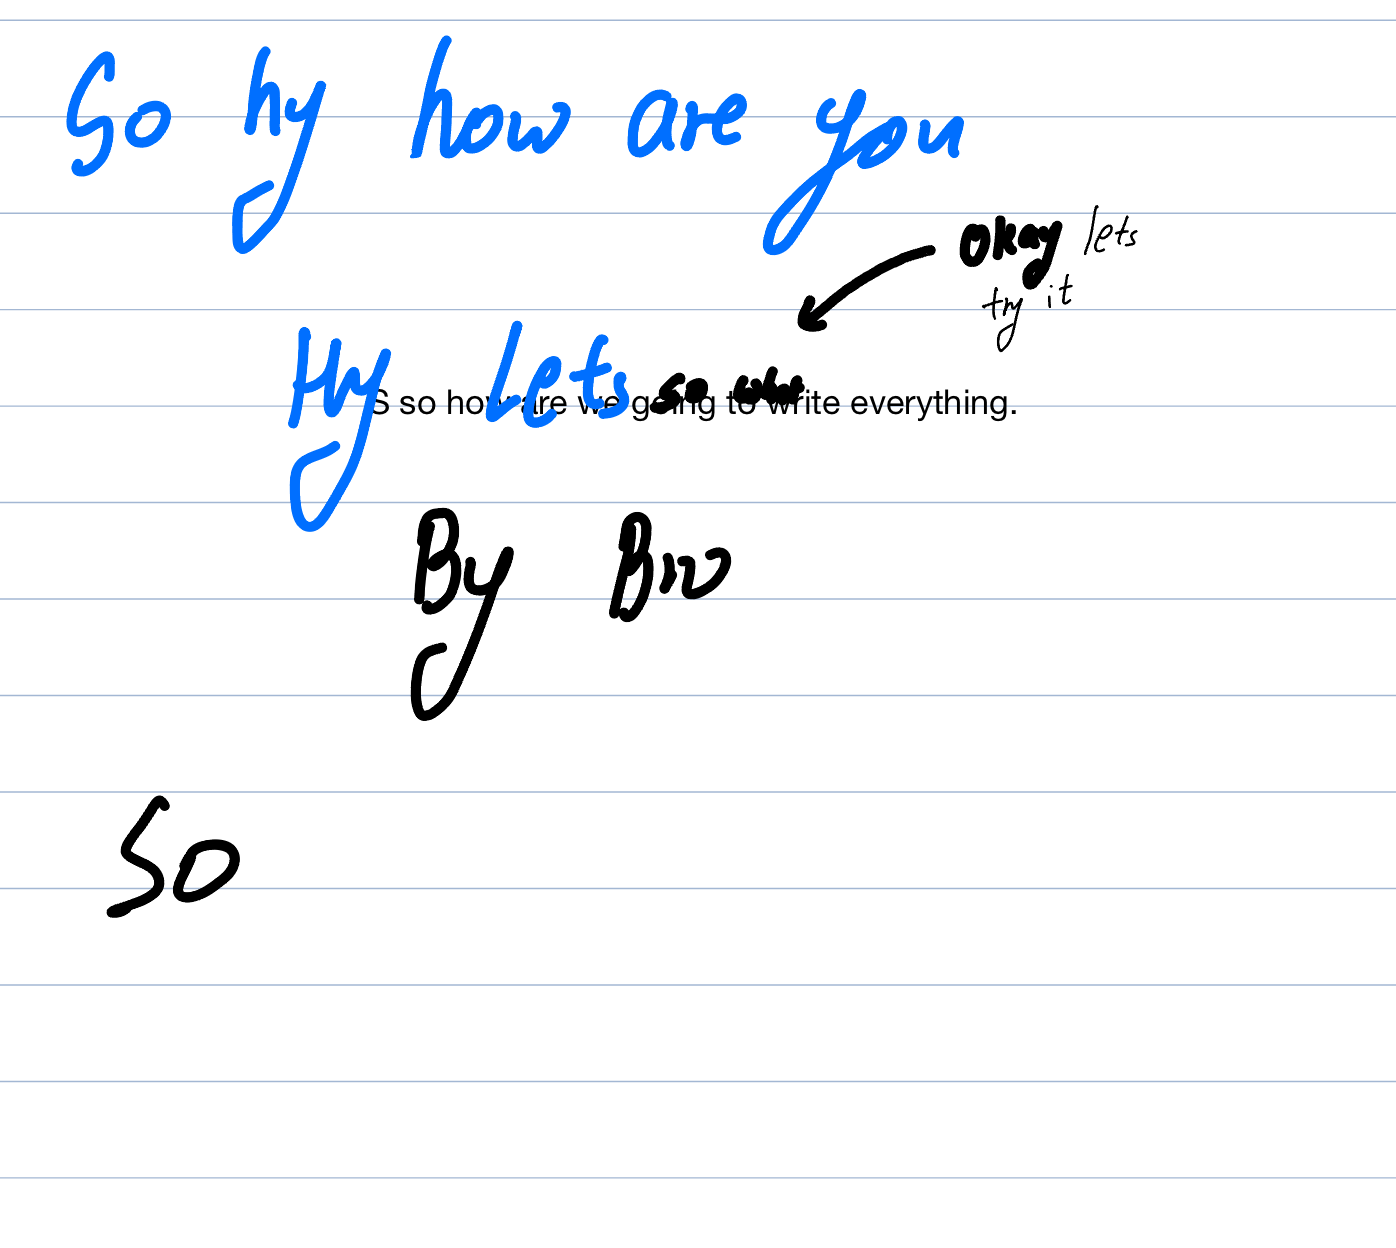 So hy how are you
okay lets
try it
Hy lets so what
S so how are we going to write everything.
By Bro
So